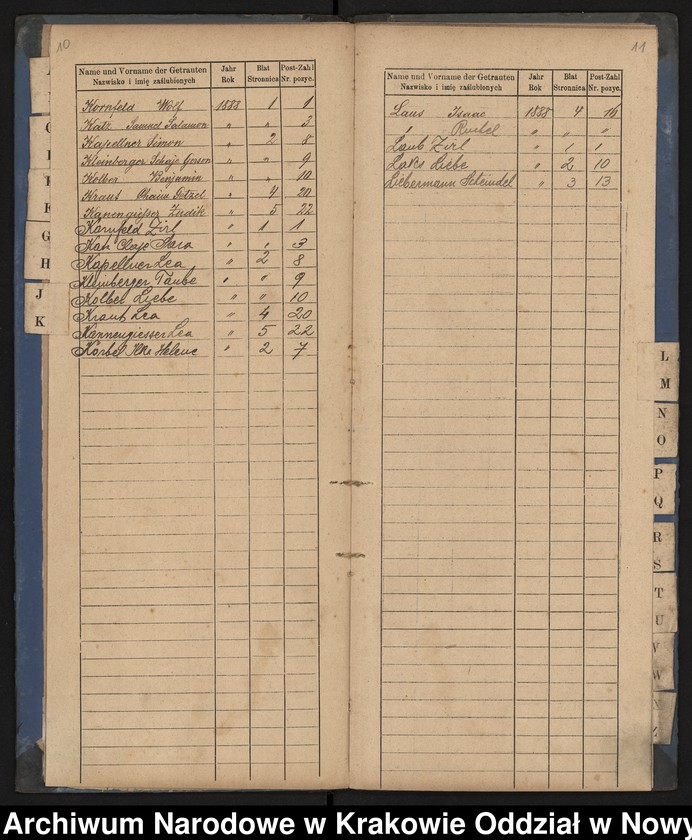 10
Name und Vorname der Getrauten
Nazwisko i imię zaślubionych
Jahr
Rok
Blat
Stronnica
Post-Zahl
Nr. pozyc.
Kornfeld Wolf 1888 1 1
Katz Samuel Salamon " " 3
Kapellner Simon " 2 8
Kleinberger Schaje Gerson " " 9
Kolber Benjamin " " 10
Kraus Chaim Getzel " 4 20
Kanengiesser Zudik " 5 22
Kornfeld Zirl " 1 1
Katz Chaje Sara " " 3
Kapellner Lea " 2 8
Kleinberger Taube " " 9
Kolber Liebe " " 10
Kraus Lea " 4 20
Kannengiesser Lea " 5 22
Körbel Helene " 2 7
G
H
J
K
11
Name und Vorname der Getrauten
Nazwisko i imię zaślubionych
Jahr
Rok
Blat
Stronnica
Post-Zahl
Nr. pozyc.
Laus Isaac 1888 4 16
" Ruchel " " "
Laub Zirl " 1 1
Laks Liebe " 2 10
Liebermann Scheindel " 3 13
L
M
N
O
P
Q
R
S
T
U
V
W
Z
Archiwum Narodowe w Krakowie Oddział w Nowy